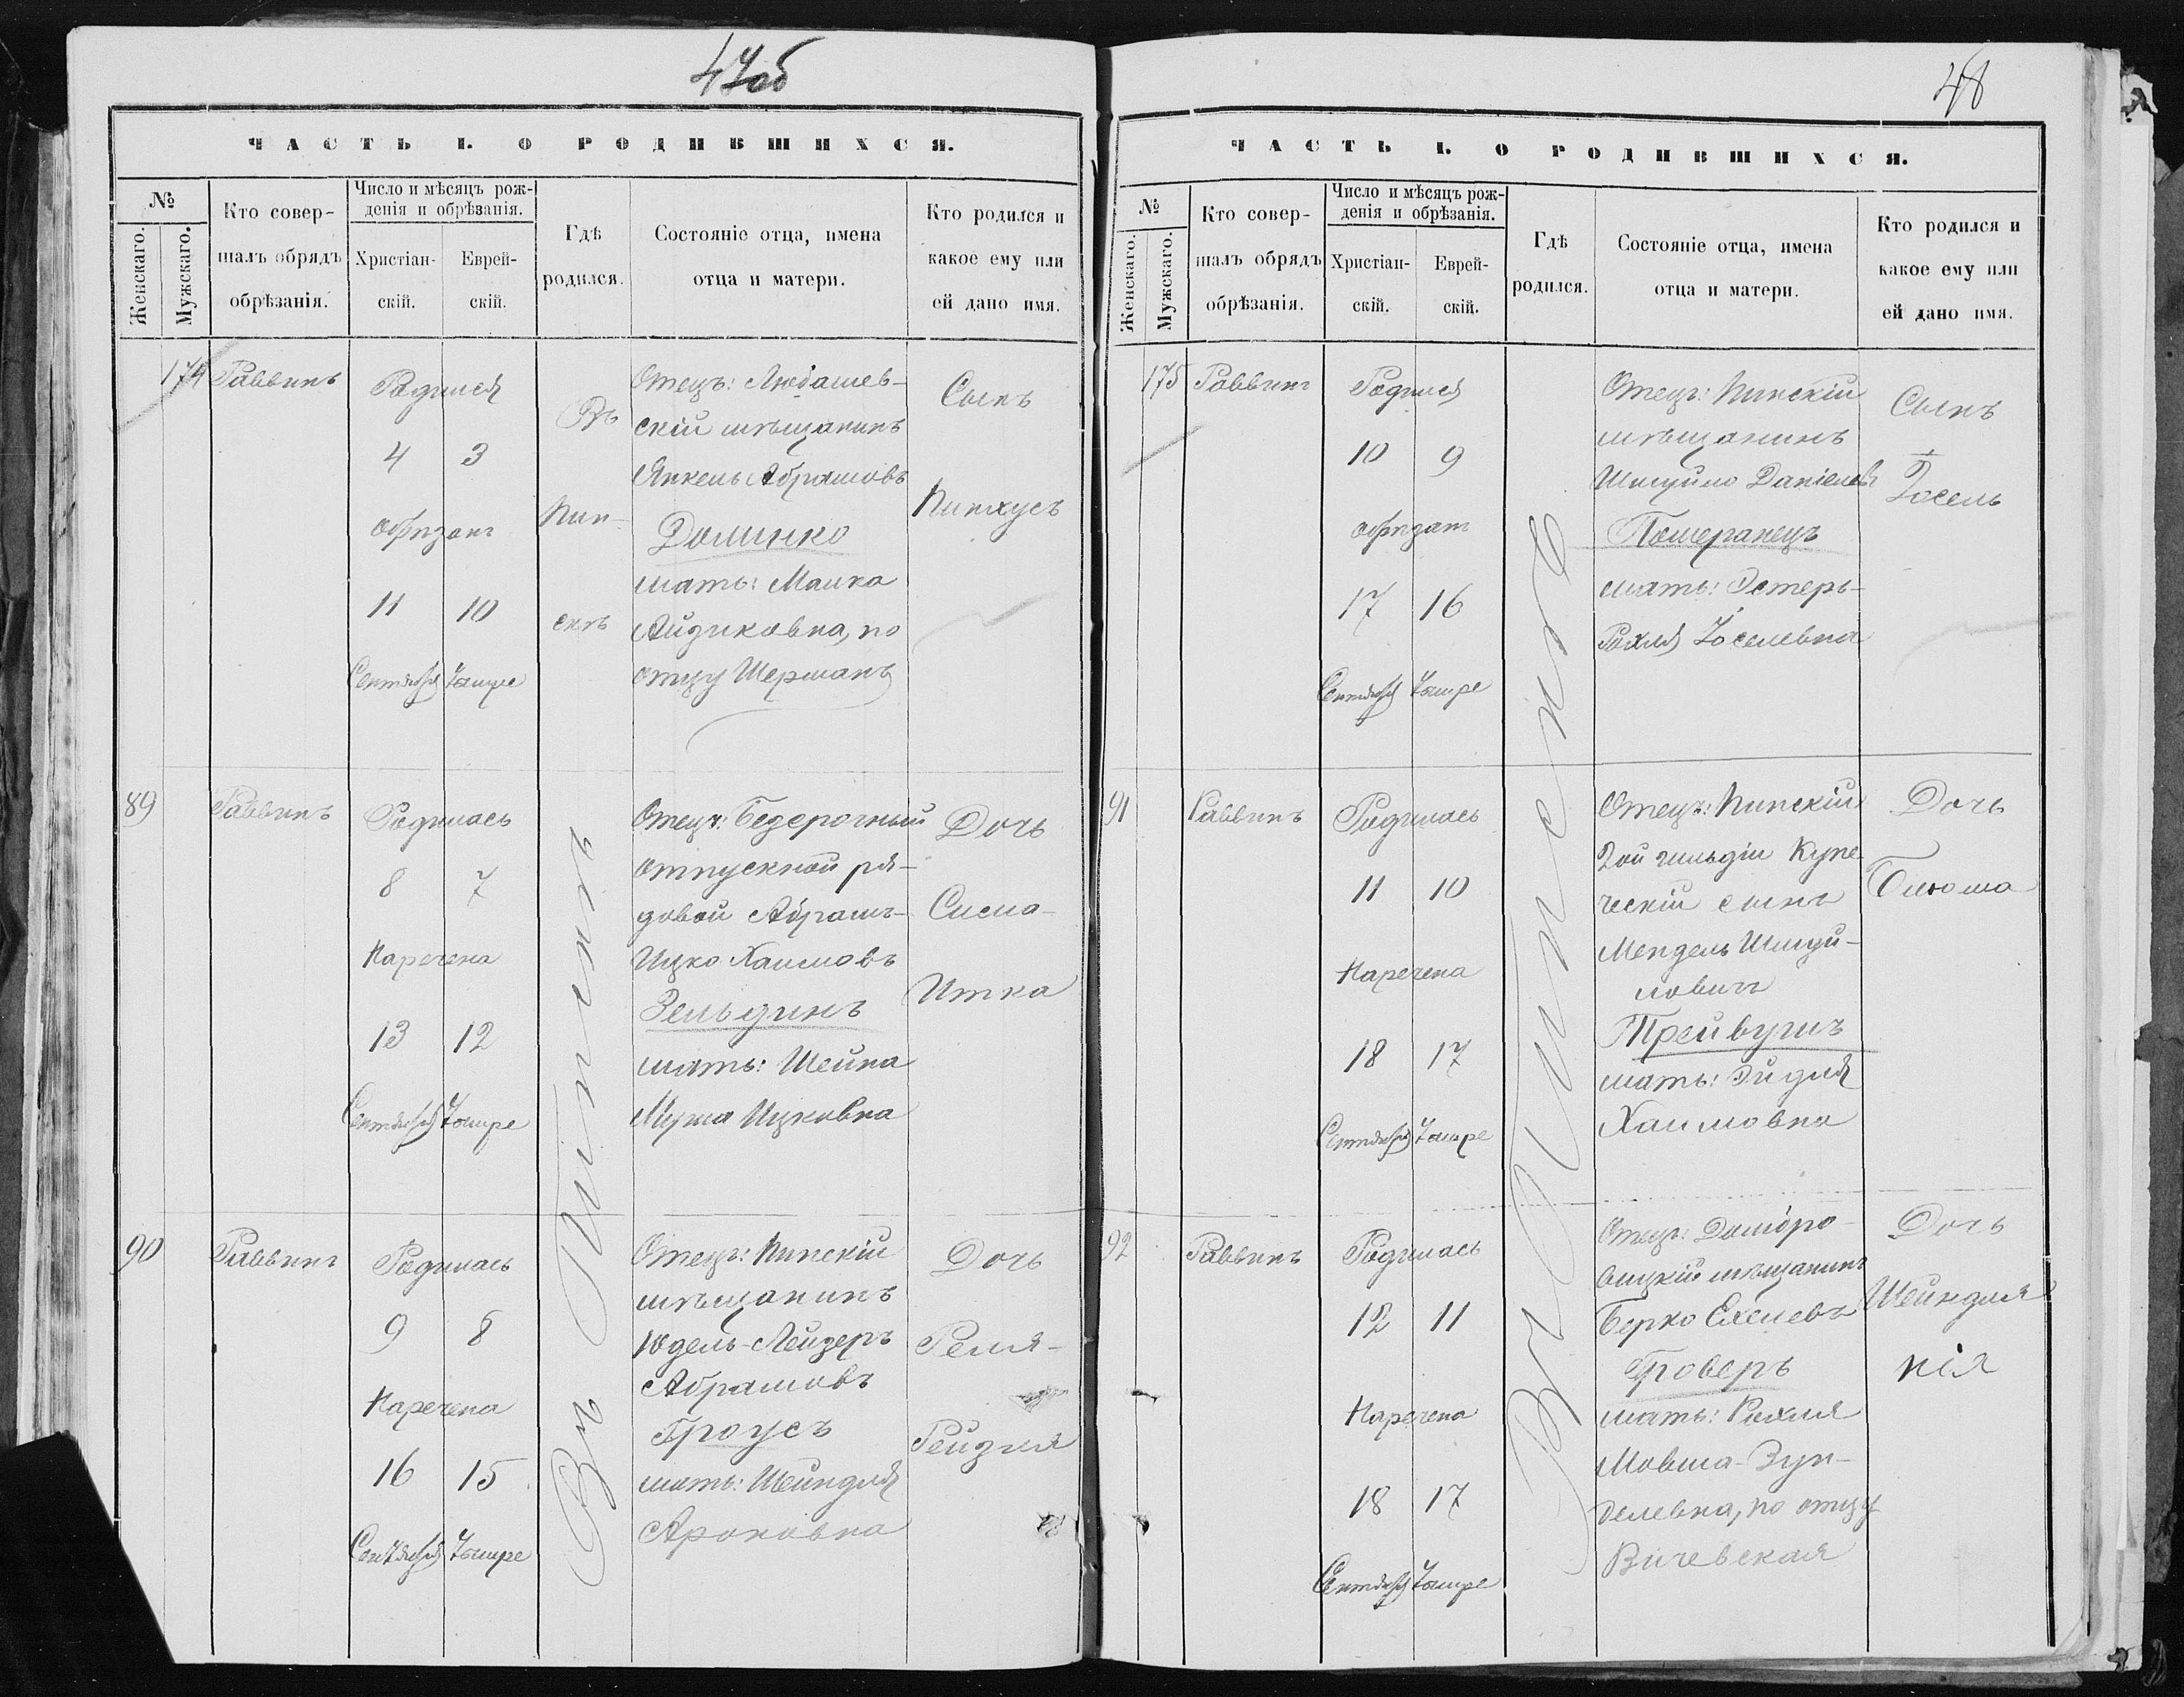 47об
ЧАСТЬ I. О РОДИВШИХСЯ.
№
Женскаго.
Мужскаго.
Кто совер-
шалъ обрядъ
обрѣзанія.
Число и мѣсяцъ рож-
денія и обрѣзанія.
Христіан-
скій.
Еврей-
скій.
Гдѣ
родился.
Состояніе отца, имена
отца и матери.
Кто родился и
какое ему или
ей дано имя.
174
Раввинъ
Родился
4 3
обрѣзанъ
11 10
Сентября Тишре
Въ
Пин-
скѣ
Отецъ: Любашев-
скій мѣщанинъ
Янкель Абрамовъ
Долинко
мать: Малка
Айзиковна, по
отцу Шерманъ
Сынъ
Пинхусъ
89
Раввинъ
Родилась
8 7
Наречена
13 12
Сентября Тишре
Въ Пинскѣ
Отецъ: Безсрочный
отпускной ря-
довой Абрамъ-
Ицко Хаимовъ
Зельдинъ
мать: Шейна
Мурма Ицковна
Дочь
Сисла-
Итка
90
Раввинъ
Родилась
9 8
Наречена
16 15
Сентября Тишре
Отецъ: Пинскій
мѣщанинъ
Юдель-Лейзеръ
Абрамовъ
Гроусъ
мать: Шейндля
Ароновна
Дочь
Реля-
Рейзля
48
ЧАСТЬ I. О РОДИВШИХСЯ.
№
Женскаго.
Мужскаго.
Кто совер-
шалъ обрядъ
обрѣзанія.
Число и мѣсяцъ рож-
денія и обрѣзанія.
Христіан-
скій.
Еврей-
скій.
Гдѣ
родился.
Состояніе отца, имена
отца и матери.
Кто родился и
какое ему или
ей дано имя.
175
Раввинъ
Родился
10 9
обрѣзанъ
17 16
Сентября Тишре
Въ Пинскѣ
Отецъ: Пинскій
мѣщанинъ
Шмуйло Даніелевъ
Померанецъ
мать: Эстеръ-
Рохля Іоселевна
Сынъ
Іосель
91
Раввинъ
Родилась
11 10
Наречена
18 17
Сентября Тишре
Отецъ: Пинскій
2ой гильдіи Купе
ческій сынъ
Мендель Шмуй-
ловичъ
Трейвушъ
мать: Эйдля
Хаимовна
Дочь
Блюма
92
Раввинъ
Родилась
12 11
Наречена
18 17
Сентября Тишре
Отецъ: Домбро-
вицкій мѣщанинъ
Берко Ехелевъ
Гроверъ
мать: Рахля
Мовша-Зун-
делевна, по отцу
Вичевская
Дочь
Шейндля
нія